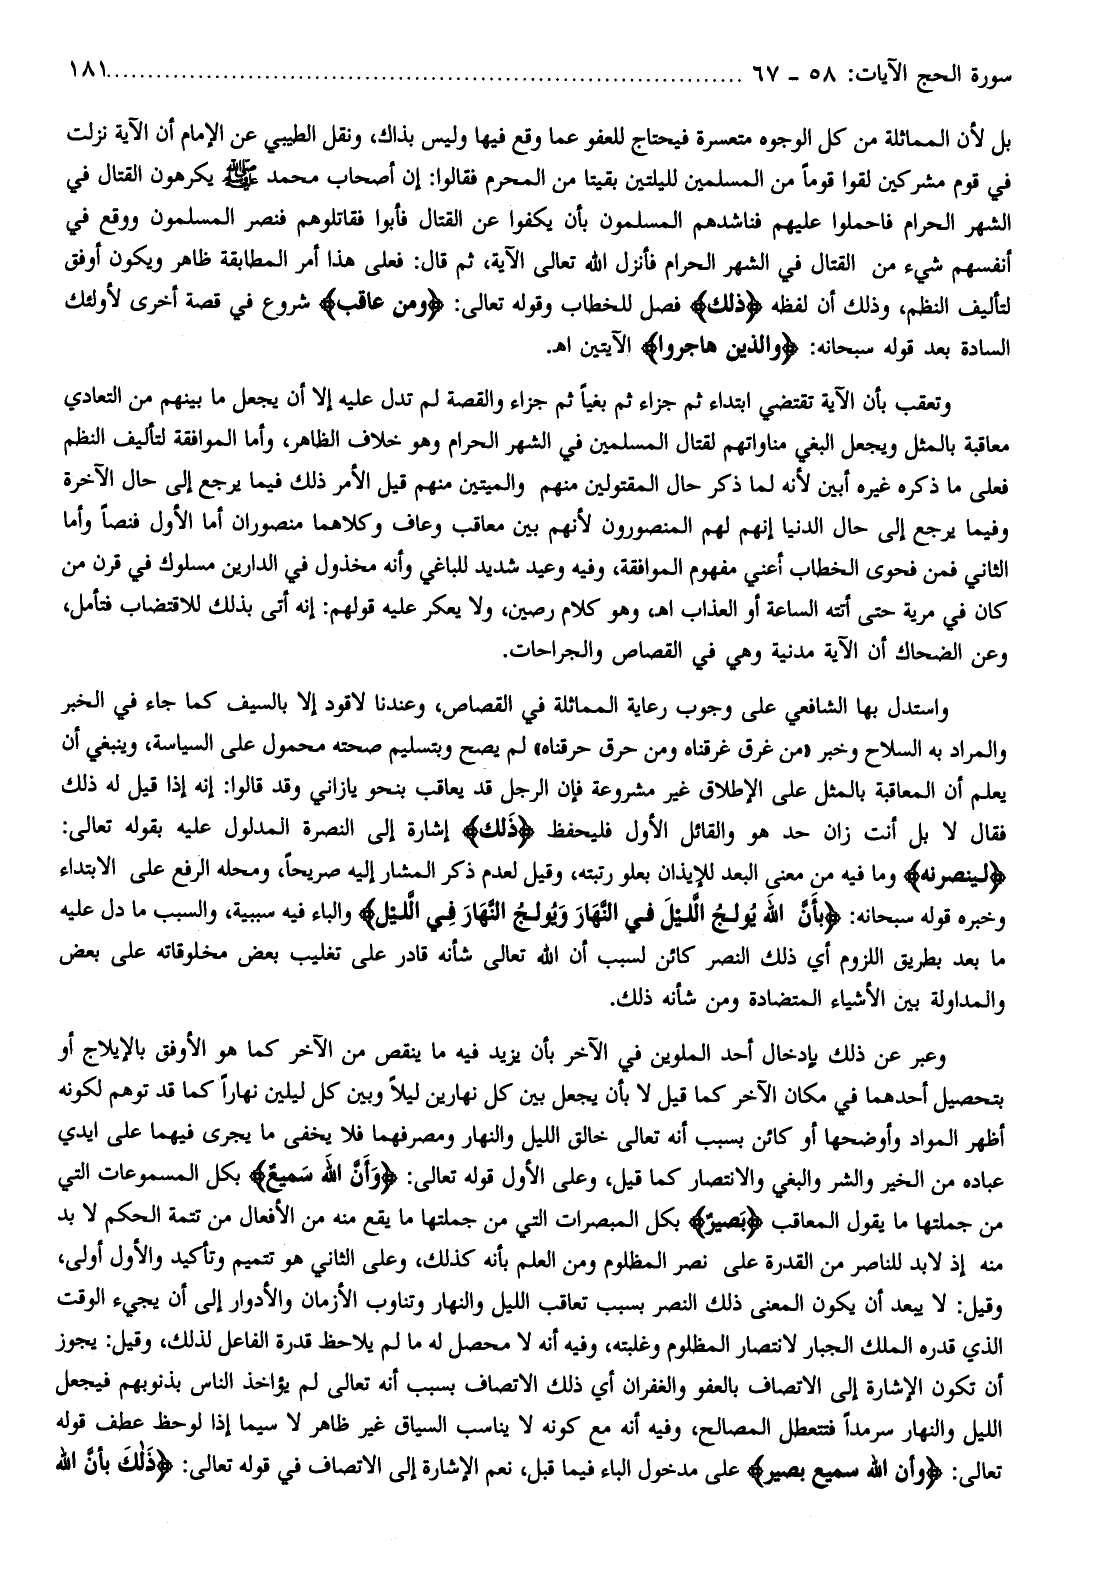 سورة الحج الآيات: ٥٨ ـ ٦٧ ................................................................................ ١٨١
بل لأن المماثلة من كل الوجوه متعسرة فيحتاج للعفو عما وقع فيها وليس بذاك، ونقل الطيبي عن الإمام أن الآية نزلت
في قوم مشركين لقوا قوماً من المسلمين لليلتين بقيتا من المحرم فقالوا: إن أصحاب محمد ﷺ يكرهون القتال في
الشهر الحرام فاحملوا عليهم فناشدهم المسلمون بأن يكفوا عن القتال فأبوا فقاتلوهم فنصر المسلمون ووقع في
أنفسهم شيء من القتال في الشهر الحرام فأنزل الله تعالى الآية، ثم قال: فعلى هذا أمر المطابقة ظاهر ويكون أوفق
لتأليف النظم، وذلك أن لفظه ﴿ذلك﴾ فصل للخطاب وقوله تعالى: ﴿ومن عاقب﴾ شروع في قصة أخرى لأولئك
السادة بعد قوله سبحانه: ﴿والذين هاجروا﴾ الآيتين اهـ.
وتعقب بأن الآية تقتضي ابتداء ثم جزاء ثم بغياً ثم جزاء والقصة لم تدل عليه إلا أن يجعل ما بينهم من التعادي
معاقبة بالمثل ويجعل البغي مناواتهم لقتال المسلمين في الشهر الحرام وهو خلاف الظاهر، وأما الموافقة لتأليف النظم
فعلى ما ذكره غيره أبين لأنه لما ذكر حال المقتولين منهم والميتين منهم قيل الأمر ذلك فيما يرجع إلى حال الآخرة
وفيما يرجع إلى حال الدنيا إنهم لهم المنصورون لأنهم بين معاقب وعاف وكلاهما منصوران أما الأول فنصاً وأما
الثاني فمن فحوى الخطاب أعني مفهوم الموافقة، وفيه وعيد شديد للباغي وأنه مخذول في الدارين مسلوك في قرن من
كان في مرية حتى أتته الساعة أو العذاب اهـ، وهو كلام رصين، ولا يعكر عليه قولهم: إنه أتى بذلك للاقتضاب فتأمل،
وعن الضحاك أن الآية مدنية وهي في القصاص والجراحات.
واستدل بها الشافعي على وجوب رعاية المماثلة في القصاص، وعندنا لاقود إلا بالسيف كما جاء في الخبر
والمراد به السلاح وخبر «من غرق غرقناه ومن حرق حرقناه» لم يصح وبتسليم صحته محمول على السياسة، وينبغي أن
يعلم أن المعاقبة بالمثل على الإطلاق غير مشروعة فإن الرجل قد يعاقب بنحو يازاني وقد قالوا: إنه إذا قيل له ذلك
فقال لا بل أنت زان حد هو والقائل الأول فليحفظ ﴿ذَلك﴾ إشارة إلى النصرة المدلول عليه بقوله تعالى:
﴿لينصرنه﴾ وما فيه من معنى البعد للإيذان بعلو رتبته، وقيل لعدم ذكر المشار إليه صريحاً، ومحله الرفع على الابتداء
وخبره قوله سبحانه: ﴿بأَنَّ الله يُولجُ اللَّيْلَ في النَّهَارَ وَيُولجُ النَّهَارَ فِي اللَّيْل﴾ والباء فيه سببية، والسبب ما دل عليه
ما بعد بطريق اللزوم أي ذلك النصر كائن لسبب أن الله تعالى شأنه قادر على تغليب بعض مخلوقاته على بعض
والمداولة بين الأشياء المتضادة ومن شأنه ذلك.
وعبر عن ذلك بإدخال أحد الملوين في الآخر بأن يزيد فيه ما ينقص من الآخر كما هو الأوفق بالإيلاج أو
بتحصيل أحدهما في مكان الآخر كما قيل لا بأن يجعل بين كل نهارين ليلاً وبين كل ليلين نهاراً كما قد توهم لكونه
أظهر المواد وأوضحها أو كائن بسبب أنه تعالى خالق الليل والنهار ومصرفهما فلا يخفى ما يجرى فيهما على ايدي
عباده من الخير والشر والبغي والانتصار كما قيل، وعلى الأول قوله تعالى: ﴿وَأَنَّ اللهَ سَميعٌ﴾ بكل المسموعات التي
من جملتها ما يقول المعاقب ﴿بَصيرٌ﴾ بكل المبصرات التي من جملتها ما يقع منه من الأفعال من تتمة الحكم لا بد
منه إذ لابد للناصر من القدرة على نصر المظلوم ومن العلم بأنه كذلك، وعلى الثاني هو تتميم وتأكيد والأول أولى،
وقيل: لا يبعد أن يكون المعنى ذلك النصر بسبب تعاقب الليل والنهار وتناوب الأزمان والأدوار إلى أن يجيء الوقت
الذي قدره الملك الجبار لانتصار المظلوم وغلبته، وفيه أنه لا محصل له ما لم يلاحظ قدرة الفاعل لذلك، وقيل: يجوز
أن تكون الإشارة إلى الاتصاف بالعفو والغفران أي ذلك الاتصاف بسبب أنه تعالى لم يؤاخذ الناس بذنوبهم فيجعل
الليل والنهار سرمداً فتتعطل المصالح، وفيه أنه مع كونه لا يناسب السياق غير ظاهر لا سيما إذا لوحظ عطف قوله
تعالى: ﴿وأن الله سميع بصير﴾ على مدخول الباء فيما قبل، نعم الإشارة إلى الاتصاف في قوله تعالى: ﴿ذَلْكَ بأَنَّ الله